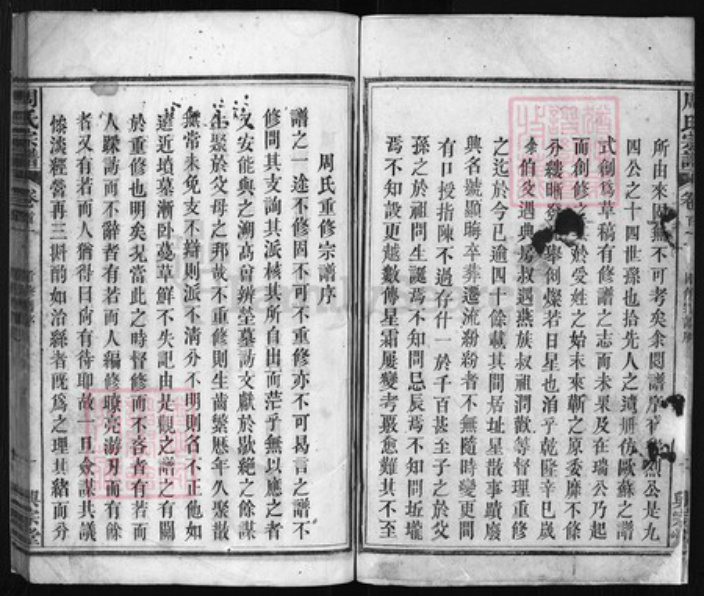 周氏宗譜
卷首
所由來因無不可考矣余閱譜序有
四公之十四世孫也拾先人之遺冊仿歐蘇之譜
式創爲草稿有修譜之志而未果及在瑞公乃起
而創修之於受姓之始末來蘄之原委靡不條
分縷晰舉創燦若日星也洎乎乾隆辛巳歲
伯父遇典房叔遇燕族叔祖潤歡等督理重修
之迄於今已逾四十餘載其間居址星散事蹟廢
興名號顯晦卒葬遷流紛紛者不無隨時變更間
有口授指陳不過存什一於千百甚至子之於父
孫之於祖問生誕焉不知問忌辰焉不知問坵壠
焉不知設更越數傳星霜屢變考覈愈難其不至
興宗堂
周氏重修宗譜序
譜之一途不修固不可不重修亦不可曷言之譜不
修問其支詢其派核其所自出而茫乎無以應之者
又安能與之溯高曾辨塋墓訪文獻於歇絕之餘謀
生聚於父母之邦哉不重修則生齒繁歷年久聚散
無常未免支不辯則派不清分不明則名不正他如
遠近墳墓漸卧蔓草鮮不失記由是觀之譜之有關
於重修也明矣況當此之時督修而不吝者有若而
人踩訪而不辭者有若而人編修瞭亮游刃而有餘
者又有若而人猶得曰尚有待耶故一旦僉謀共議
慘淡經營再三斟酌如治絲者旣爲之理其緒而分
周氏宗譜
卷首
興宗堂